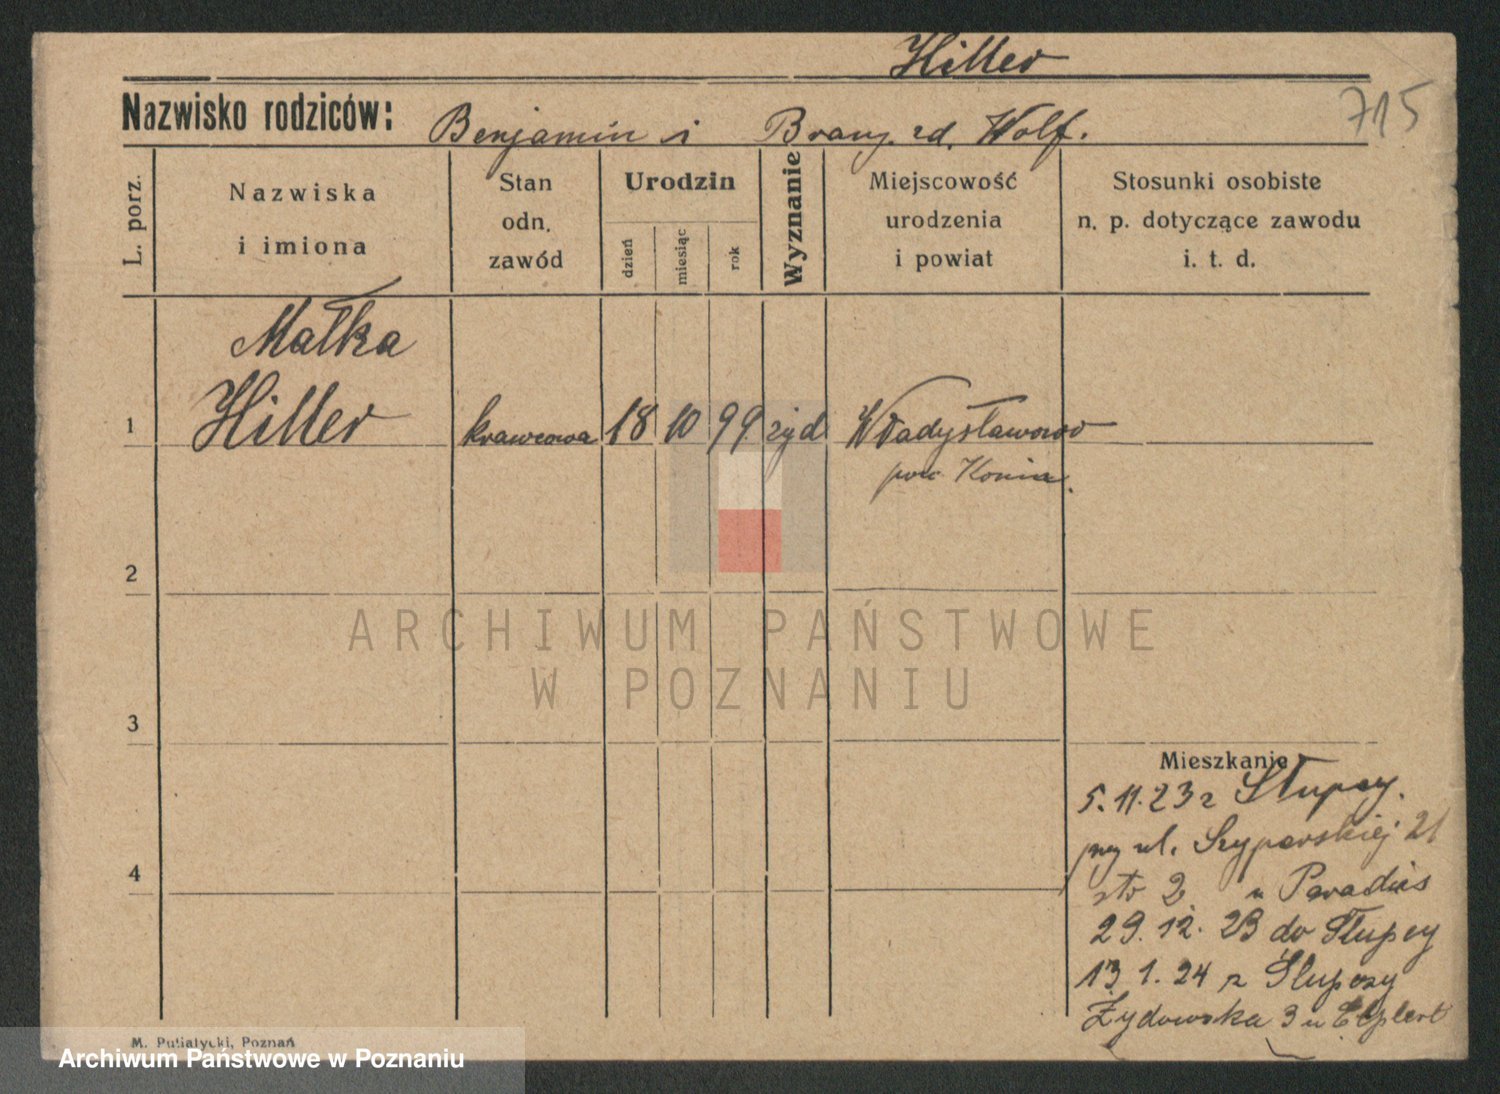 Hiller
715
Nazwisko rodziców: Benjamin i Brany zd. Wolf.
L. porz.
Nazwiska
i imiona
Stan
odn.
zawód
Urodzin
dzień
miesiąc
rok
Wyznanie
Miejscowość
urodzenia
i powiat
Stosunki osobiste
n. p. dotyczące zawodu
i. t. d.
Małka
1 Hiller krawcowa 18 10 99 żyd Władysławowo
pow Konin.
2
3
4
ARCHIWUM PAŃSTWOWE
W POZNANIU
Mieszkanie
5.11.23 z Słupcy.
przy ul. Szyperskiej 21
u Paradies
29.12.23 do Słupcy
13.1.24 z Słupczy
Żydowska 3 u
M. Putiatycki, Poznań
Archiwum Państwowe w Poznaniu